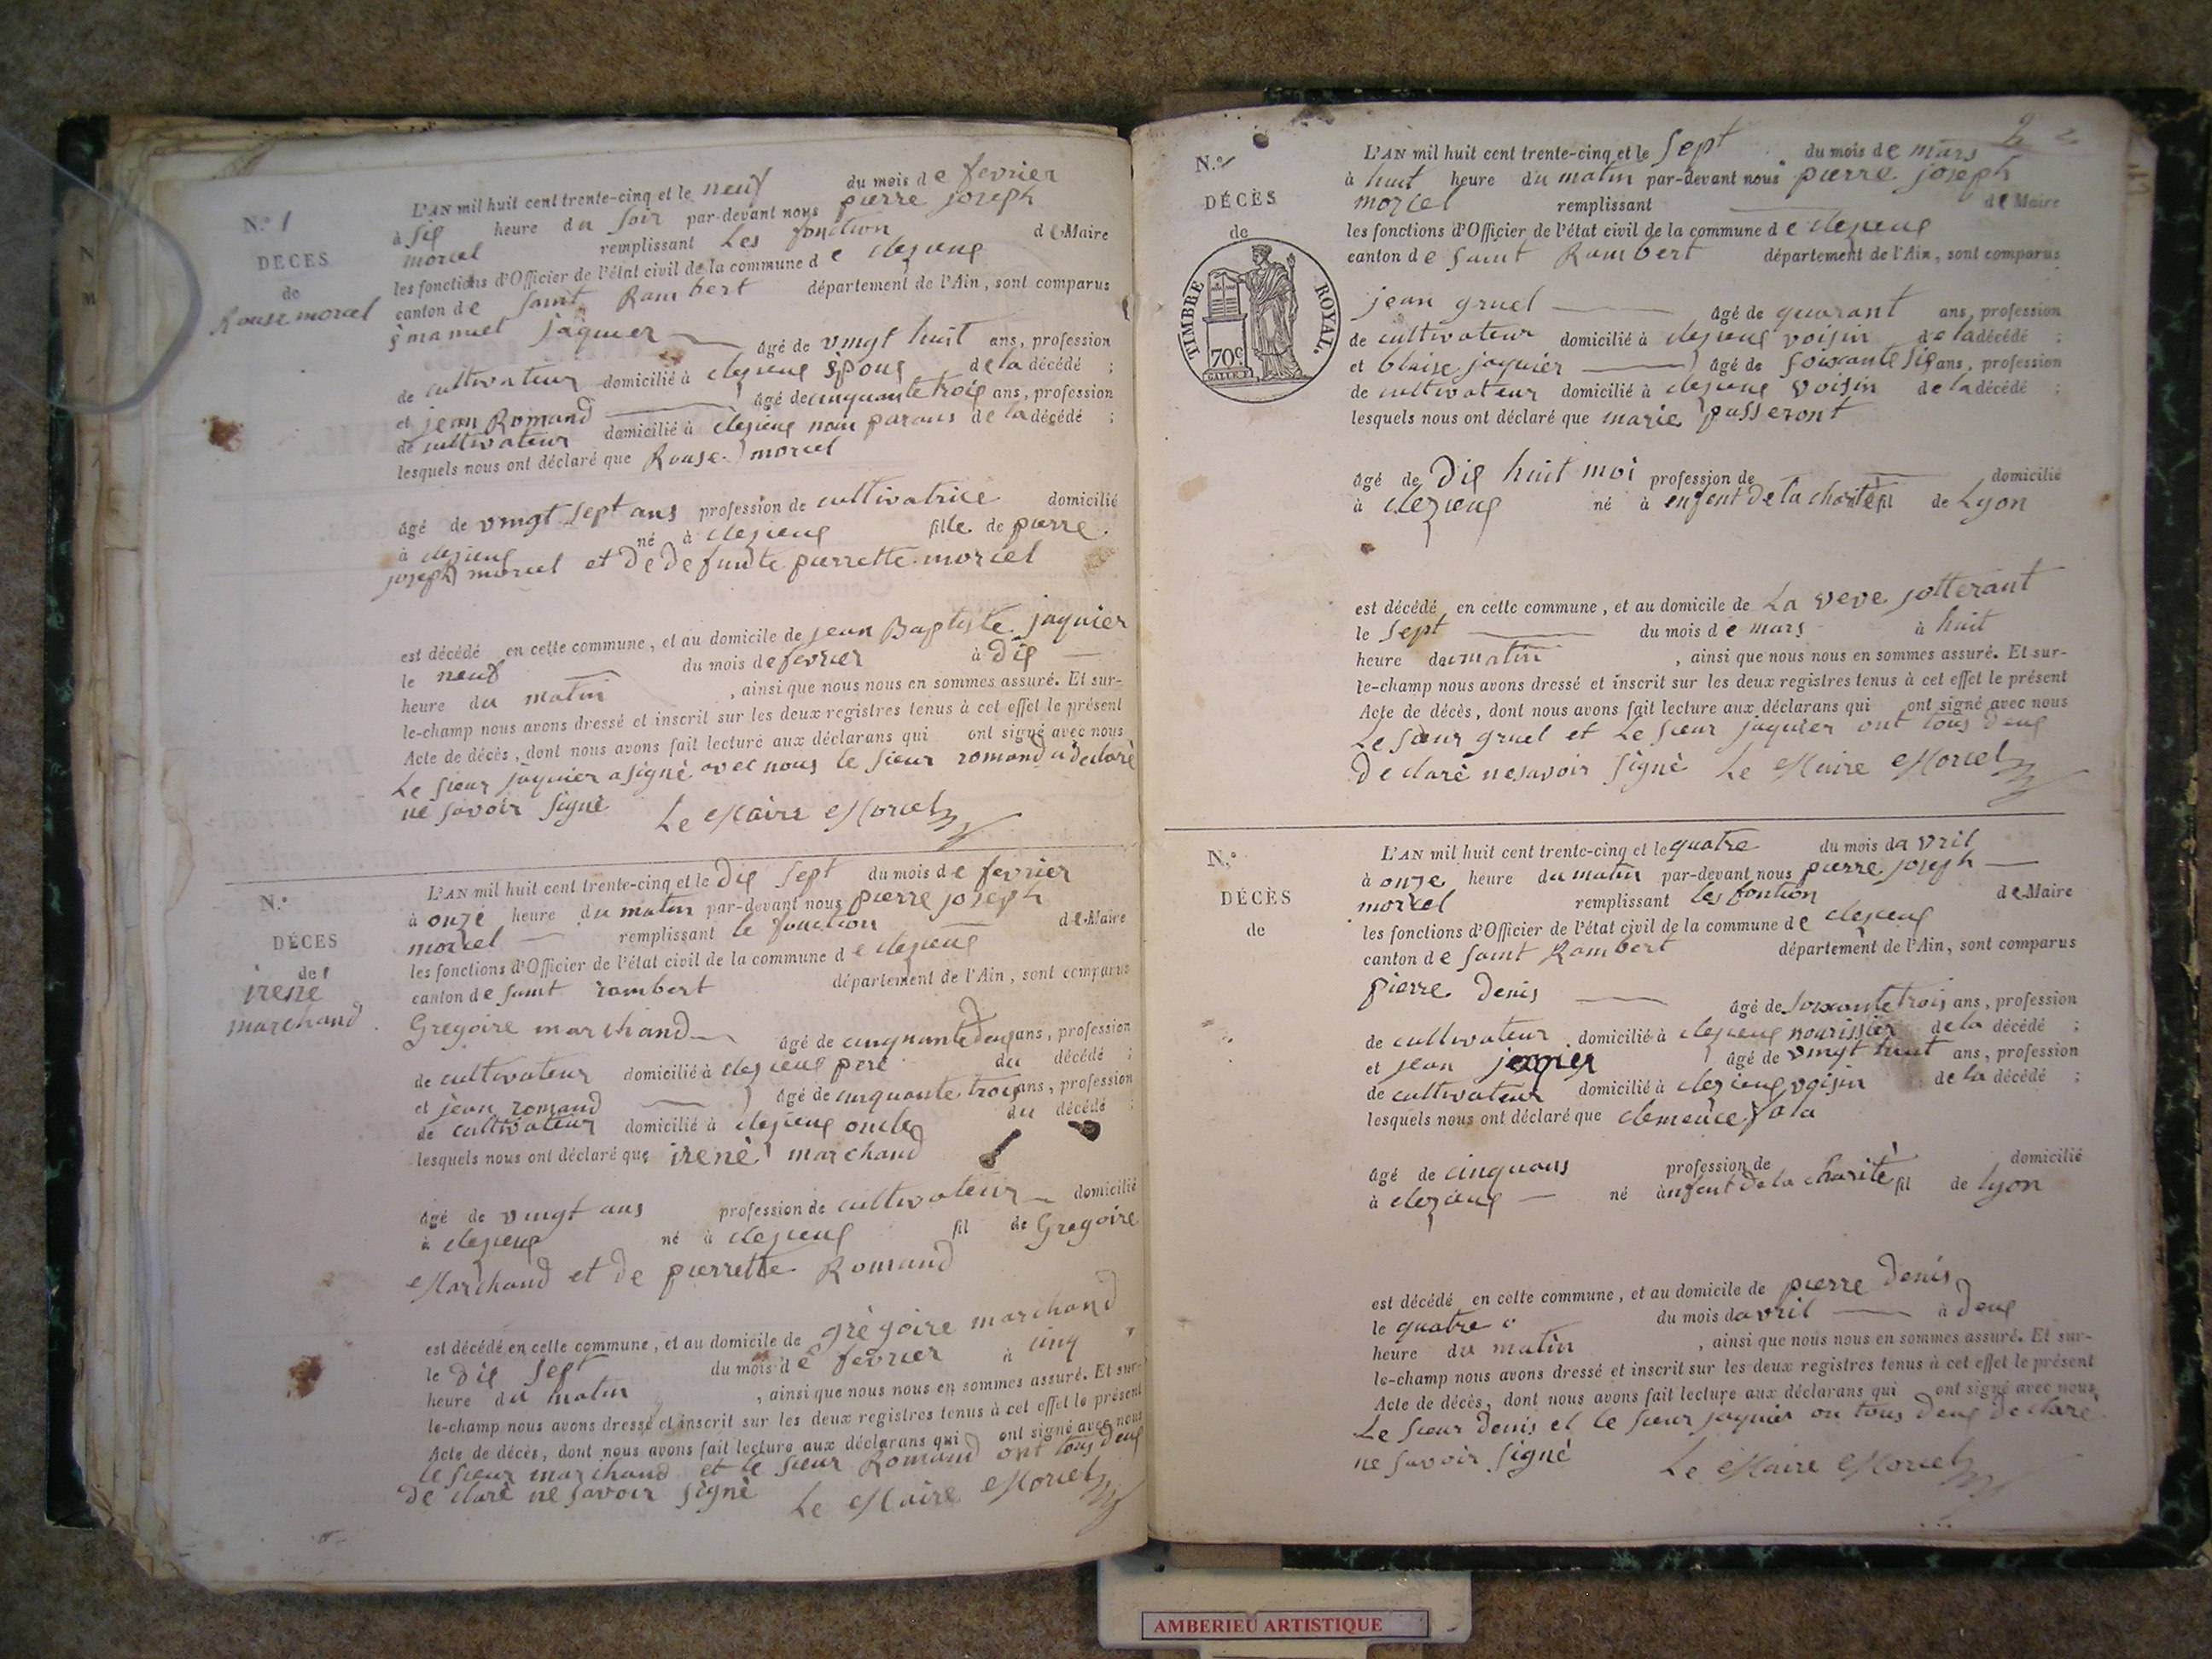 N.° 1
DÉCES
de
Rouse morcel
L'AN mil huit cent trente-cinq et le neuf du mois de fevrier
à sis heure du soir par-devant nous pierre joseph
morcel remplissant Les fonction de Maire
les fonctions d'Officier de l'état civil de la commune de clezieus
canton de saint Rambert département de l'Ain, sont comparus
émanuel jaquier âgé de vingt huit ans, profession
de cultivateur domicilié à clezieus épous de la décédé ;
et jean Romand âgé de cinquante trois ans, profession
de cultivateur domicilié à clezieus parans de la décédé ;
lesquels nous ont déclaré que Rouse morcel
âgé de vingt sept ans profession de cultivatrice domicilié
à clezieus né à clezieus fille de pierre
joseph morcel et de defunte pierrette morcel
est décédé en cette commune, et au domicile de jean Baptiste jaquier
le neuf du mois de fevrier à dis
heure du matin , ainsi que nous nous en sommes assuré. Et sur-
le-champ nous avons dressé et inscrit sur les deux registres tenus à cet effet le présent
Acte de décès, dont nous avons fait lecture aux déclarans qui ont signé avec nous
Le sieur jaquier a signé avec nous le sieur romand a declarè
ne savoir signè Le Maire Morcel
N.°
DÉCES
de
irenè
marchand
L'AN mil huit cent trente-cinq et le dis sept du mois de fevrier
à onze heure du matin par-devant nous pierre joseph
morcel remplissant le fonction de Maire
les fonctions d'Officier de l'état civil de la commune de clezieus
canton de saint rambert département de l'Ain, sont comparus
Gregoire marchand âgé de cinquante deus ans, profession
de cultivateur domicilié à clezieus pere du décédé ;
et jean romand âgé de cinquante trois ans, profession
de cultivateur domicilié à clezieus oncle du décédé ;
lesquels nous ont déclaré que irenè marchand
âgé de vingt ans profession de cultivateur domicilié
à clezieus né à clezieus fil de Gregoire
Marchand et de pierrette Romand
est décédé en cette commune, et au domicile de grègoire marchand
le dis sept du mois de fevrier à cinq
heure du matin , ainsi que nous nous en sommes assuré. Et sur-
le-champ nous avons dressé et inscrit sur les deux registres tenus à cet effet le présent
Acte de décès, dont nous avons fait lecture aux déclarans qui ont signé avec nous
le sieur marchand et le sieur Romand ont tous deus
declarè ne savoir signè Le Maire Morcel
2
N.°
DÉCÈS
de
TIMBRE ROYAL.
70c
L'AN mil huit cent trente-cinq et le sept du mois de mars
à huit heure du matin par-devant nous pierre joseph
morcel remplissant de Maire
les fonctions d'Officier de l'état civil de la commune de clezieus
canton de saint Rambert département de l'Ain, sont comparus
jean gruel âgé de quarant ans, profession
de cultivateur domicilié à clezieus voisin de la décédé ;
et blaise jaquier âgé de soixante sis ans, profession
de cultivateur domicilié à clezieus voisin de la décédé ;
lesquels nous ont déclaré que marie passeront
âgé de dis huit moi profession de domicilié
à clezieus né à enfent de la charitè fil de Lyon
est décédé en cette commune, et au domicile de La veve jotterant
le sept du mois de mars à huit
heure du matin , ainsi que nous nous en sommes assuré. Et sur-
le-champ nous avons dressé et inscrit sur les deux registres tenus à cet effet le présent
Acte de décès, dont nous avons fait lecture aux déclarans qui ont signé avec nous
Le sieur gruel et Le sieur jaquier ont tous deus
declarè ne savoir signè Le Maire Morcel
N.°
DÉCÈS
de
L'AN mil huit cent trente-cinq et le quatre du mois d'avril
à onze heure du matin par-devant nous pierre joseph
morcel remplissant les fontion de Maire
les fonctions d'Officier de l'état civil de la commune de clezieus
canton de saint Rambert département de l'Ain, sont comparus
pierre denis âgé de soixante trois ans, profession
de cultivateur domicilié à clezieus nourissier de la décédé ;
et jean âgé de vingt huit ans, profession
de cultivateur domicilié à clezieus voisin de la décédé ;
lesquels nous ont déclaré que clemence
âgé de cinq ans profession de domicilié
à clezieus né à enfent de la charitè fil de Lyon
est décédé en cette commune, et au domicile de pierre denis
le quatre du mois d'avril à deus
heure du matin , ainsi que nous nous en sommes assuré. Et sur-
le-champ nous avons dressé et inscrit sur les deux registres tenus à cet effet le présent
Acte de décès, dont nous avons fait lecture aux déclarans qui ont signé avec nous
Le sieur denis et le sieur jaquier on tous deus declarè
ne savoir signè Le Maire Morcel
AMBERIEU ARTISTIQUE